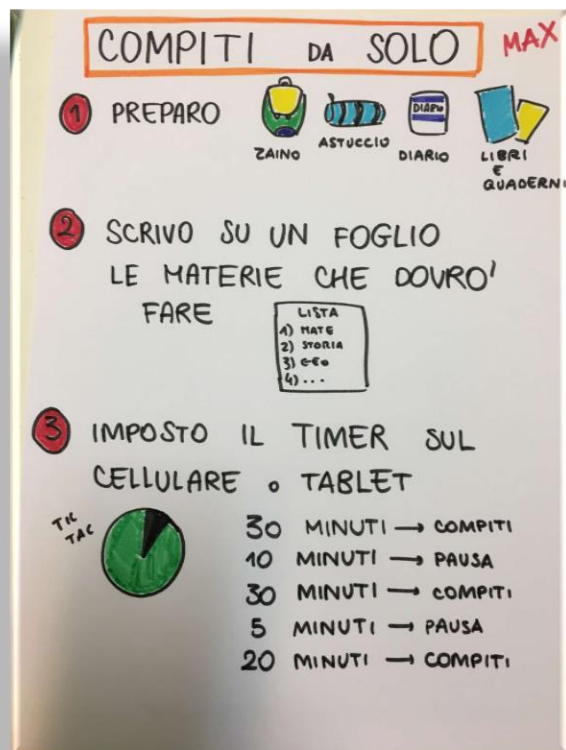 COMPITI DA SOLO
MAX
1 PREPARO
ZAINO
ASTUCCIO
DIARIO
DIARIO
LIBRI
E
QUADERNI
2 SCRIVO SU UN FOGLIO
LE MATERIE CHE DOVRO'
FARE
LISTA
1) MATE
2) STORIA
3) GEO
4) ...
3 IMPOSTO IL TIMER SUL
CELLULARE o TABLET
TIC
TAC
30 MINUTI → COMPITI
10 MINUTI → PAUSA
30 MINUTI → COMPITI
5 MINUTI → PAUSA
20 MINUTI → COMPITI